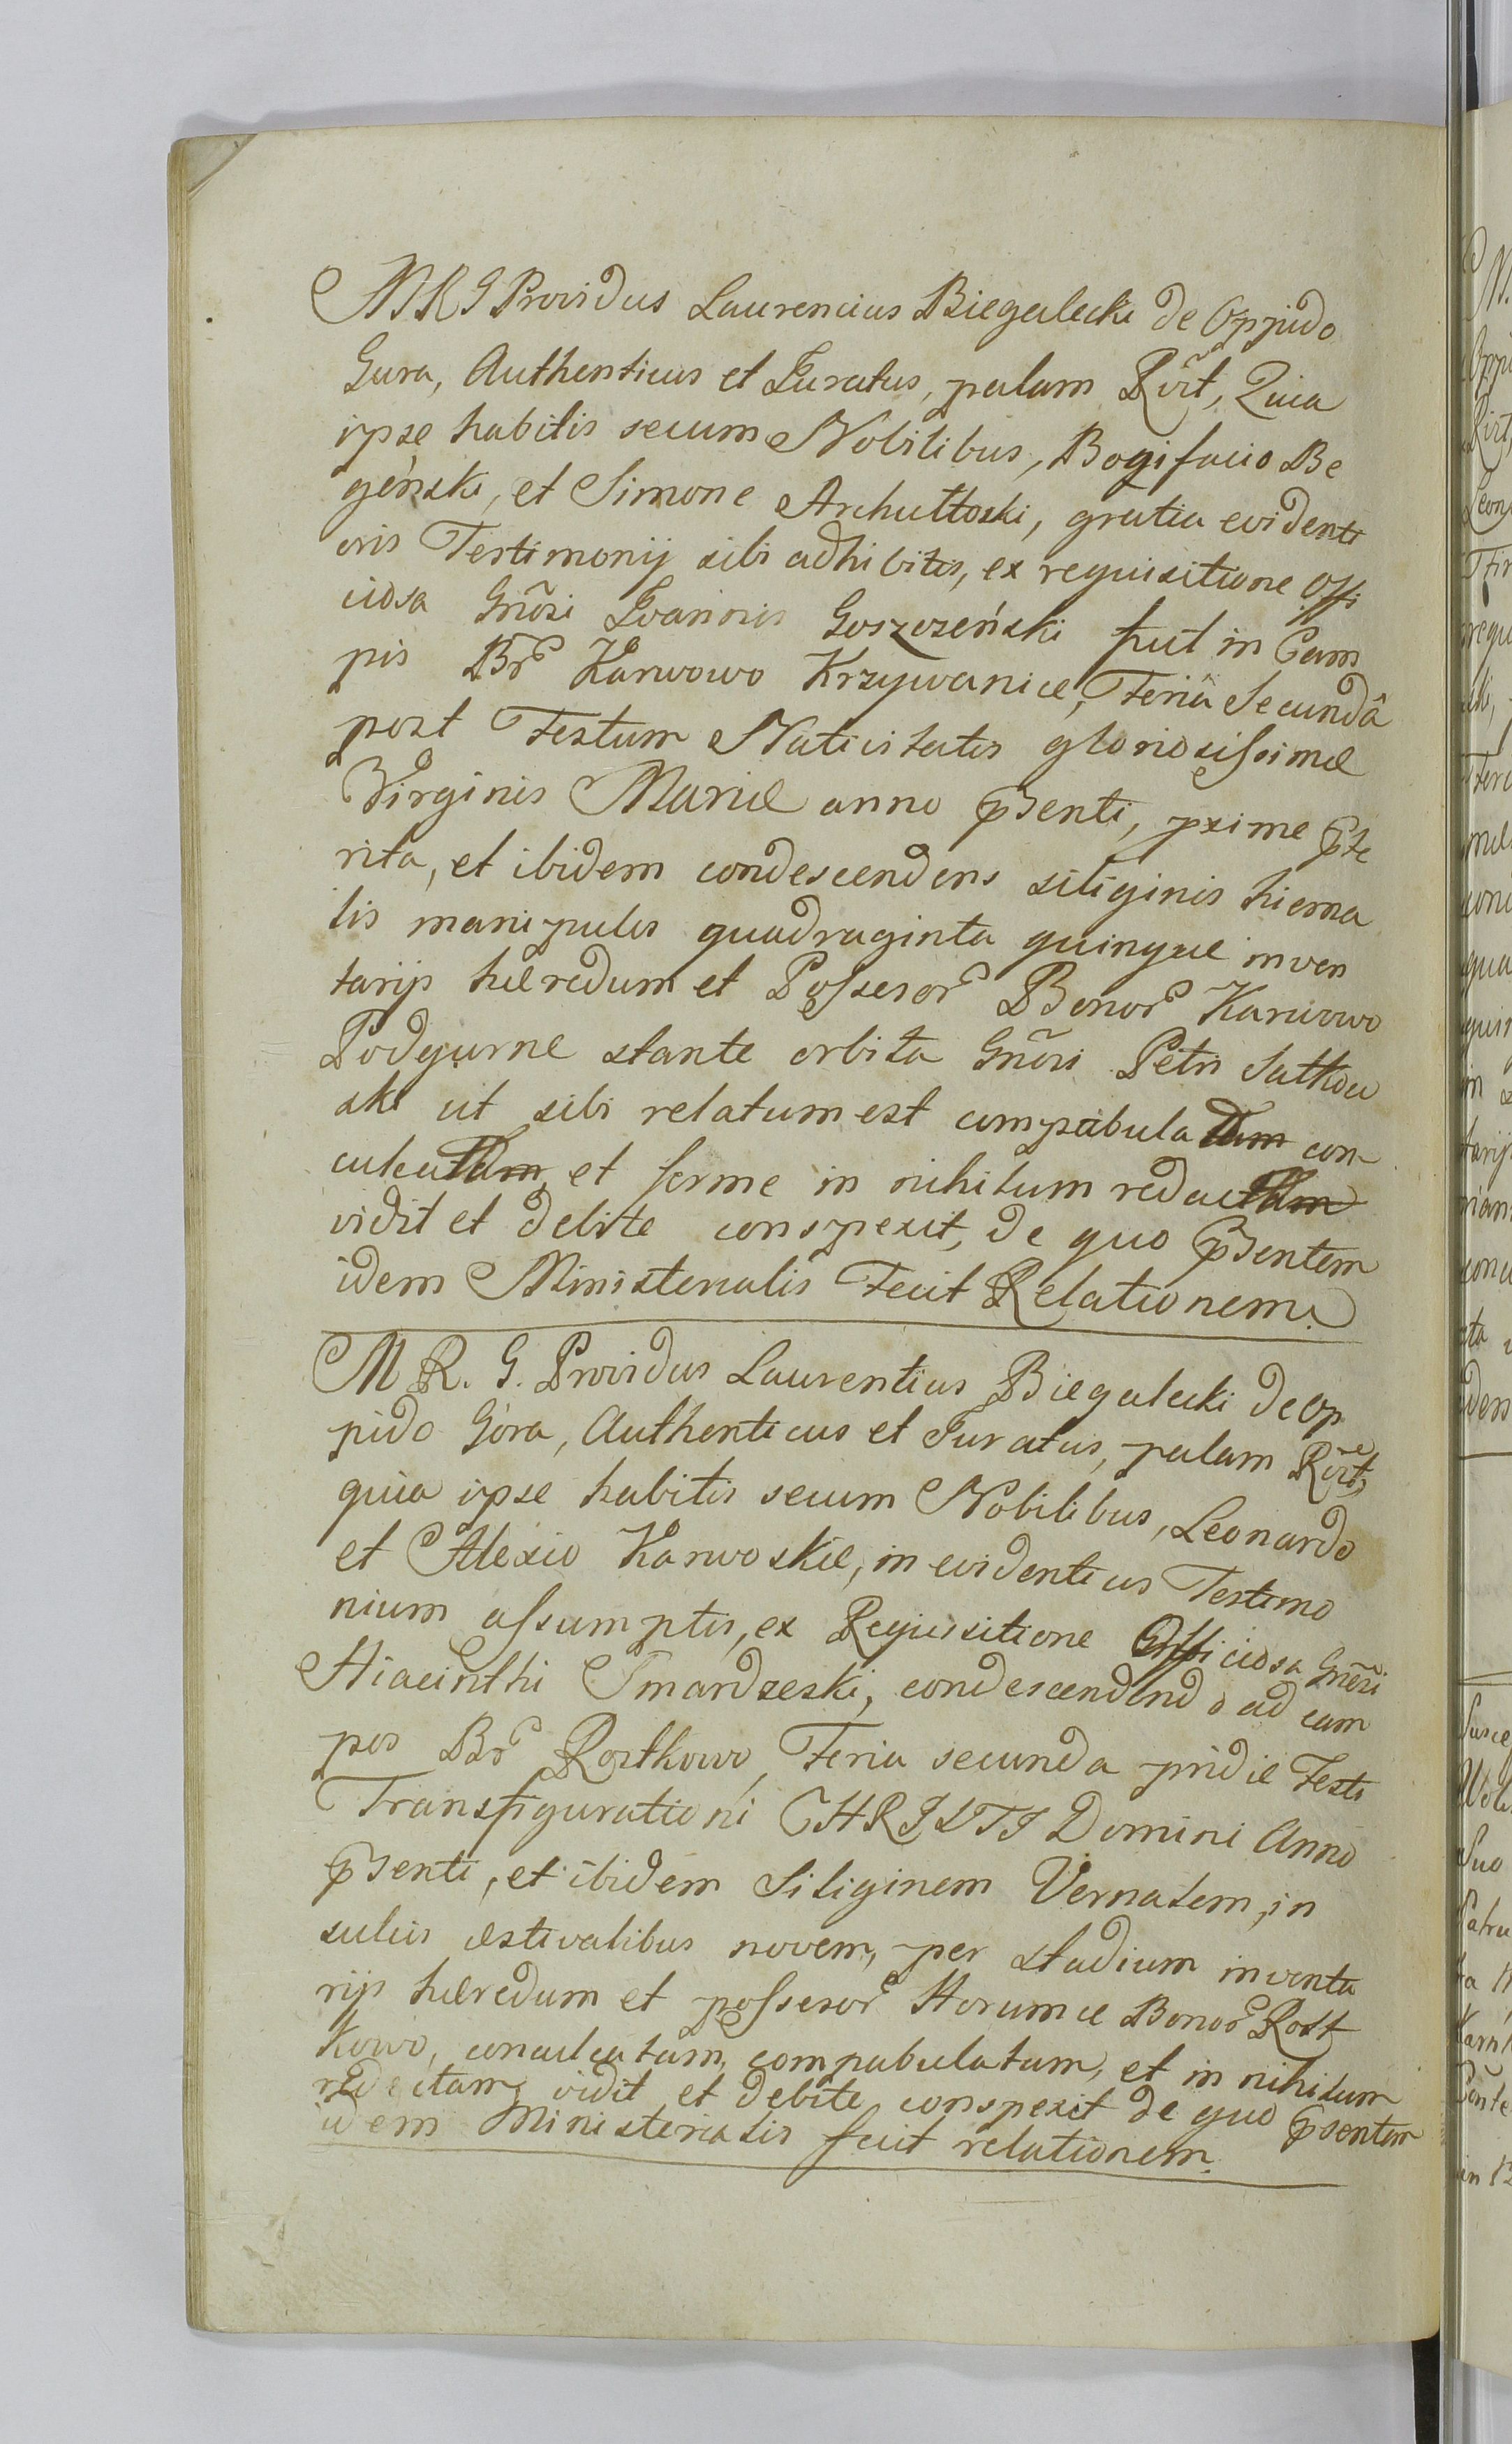 MRG Providus Laurencius Biegalecki de Oppido
Gura, Authenticus et Juratus, palam Rčrt, Quia
ipse habitis secum Nobilibus, Bogifacio Be
génski, et Simone Archuttoski, gratia evidenti
oris Testimonij sibi adhibitis, ex requisitione Offi
ciosa Gñosi Joannis Goszczeński fuit in Cam
pis Br̃ Karwowo Krzywanice, Feria Secundâ
post Festum Nativitatis gloriosissimæ
Virginis Mariæ anno pñsenti, pxime pte
rita, et ibidem condescendens siliginis hiema
lis manipulos quadraginta quinque inven
tarijs hæredum et Possesor̃ Bonor̃ Karwowo
Podgurne stante orbita Gñosi Petri Sutkow
ski ut sibi relatum est compabulatum con-
culcatam, et ferme in nihilum redactam
vidit et debite conspexit, de quo pñsentem
idem Ministerialis Fecit Relationem.
M R. G. Providus Laurentius Biegalecki de Op
pido Góra, Authenticus et Juratus, palam Rčrt,
quia ipse habitis secum Nobilibus, Leonardo
et Alexio Karwoskie, in evidentius Testimo
nium assumptis, ex Requisitione Officiosa Gñosi
Hiacinthi Smardzeski, condescendendo ad cam
pos Br̃ Rostkowo, Feria secunda pridie Festi
Transfigurationi CHRISTI Domini Anno
pñsenti, et ibidem Siliginem Vernalem, in
sulcis æstivalibus novem, per stadium inventa
rijs hæredum et possesor̃ Horumce Bonor̃ Rost
kowo, conculcatam, compabulatam, et in nihilum
redactam, vidit et debite conspexit de quo pñsentem
idem Ministerialis fecit relationem.